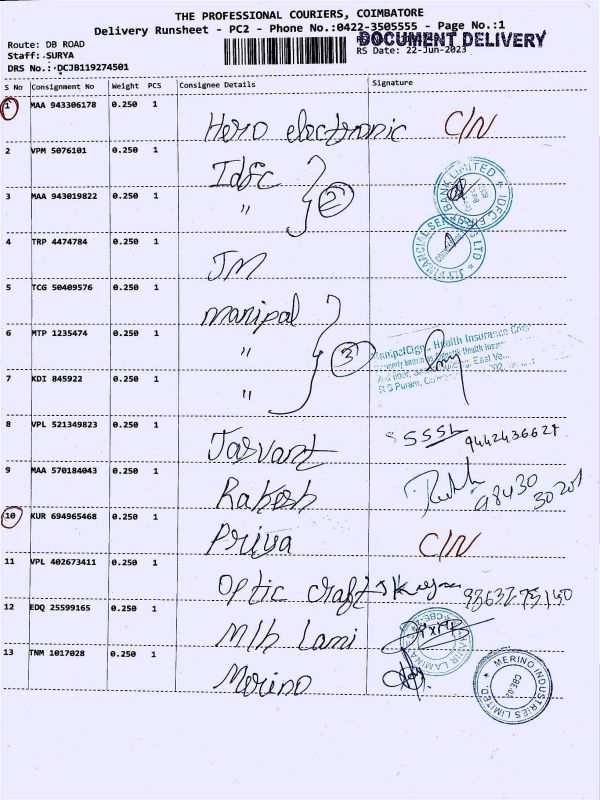 THE PROFESSIONAL COURIERS, COIMBATORE
Delivery Runsheet - PC2 - Phone No.:0422-3505555 - Page No.:1
DOCUMENT DELIVERY
Route: DB ROAD
Staff: SURYA
RS Date: 22-Jun-2023
DRS No.: DCJB119274501
S No Consignment No Weight PCS Consignee Details Signature
1 MAA 943306178 0.250 1 Hero electronic C/N
2 VPM 5076101 0.250 1 Idfc
3 MAA 943019822 0.250 1 " 2
BANK LIMITED IDFC
4 TRP 4474784 0.250 1 JM
FINANCIAL LTD
5 TCG 50409576 0.250 1 manipal
6 MTP 1235474 0.250 1 " 3
Health Insurance
Health
East
R S Puram,
7 KDI 845922 0.250 1 "
8 VPL 521349823 0.250 1 Jasvant 9442436627
9 MAA 570184043 0.250 1 Rakesh 98430
30201
10 KUR 694965468 0.250 1 Priya C/N
11 VPL 402673411 0.250 1 Optic craft
12 EDQ 25599165 0.250 1 M/h Lami
13 TNM 1017028 0.250 1 Merino
MERINO INDUSTRIES LIMITED